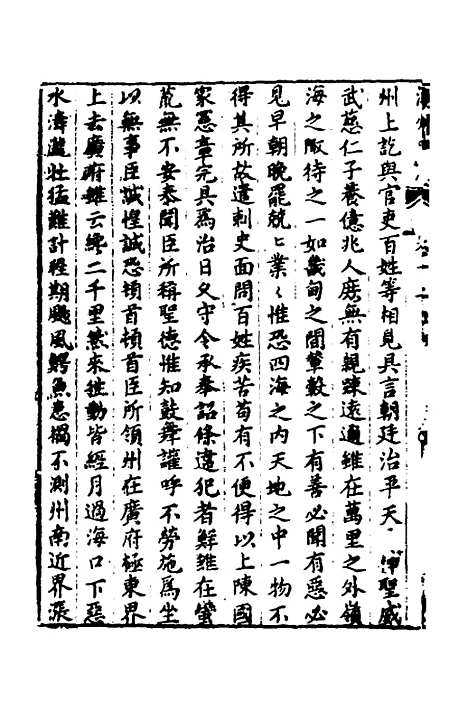 州上訖與官吏百姓等相見具言朝廷治平天 神聖威
武慈仁子養億兆人庶無有親疎遠邇雖在萬里之外嶺
海之陬待之一如畿甸之間輦轂之下有善必聞有惡必
見早朝晚罷兢〻業〻惟恐四海之内天地之中一物不
得其所故遣刺史面問百姓疾苦苟有不便得以上陳國
家憲章完具為治日久守令承奉詔條違犯者鮮雖在蠻
荒無不安泰聞臣所稱聖德惟知鼓舞讙呼不勞施為坐
以無事臣誠惶誠恐頓首頓首臣所領州在廣府極東界
上去廣府雖云纔二千里然來往動皆經月過海口下惡
水濤瀧壯猛難計經期颶風鰐魚患禍不測州南近界漲